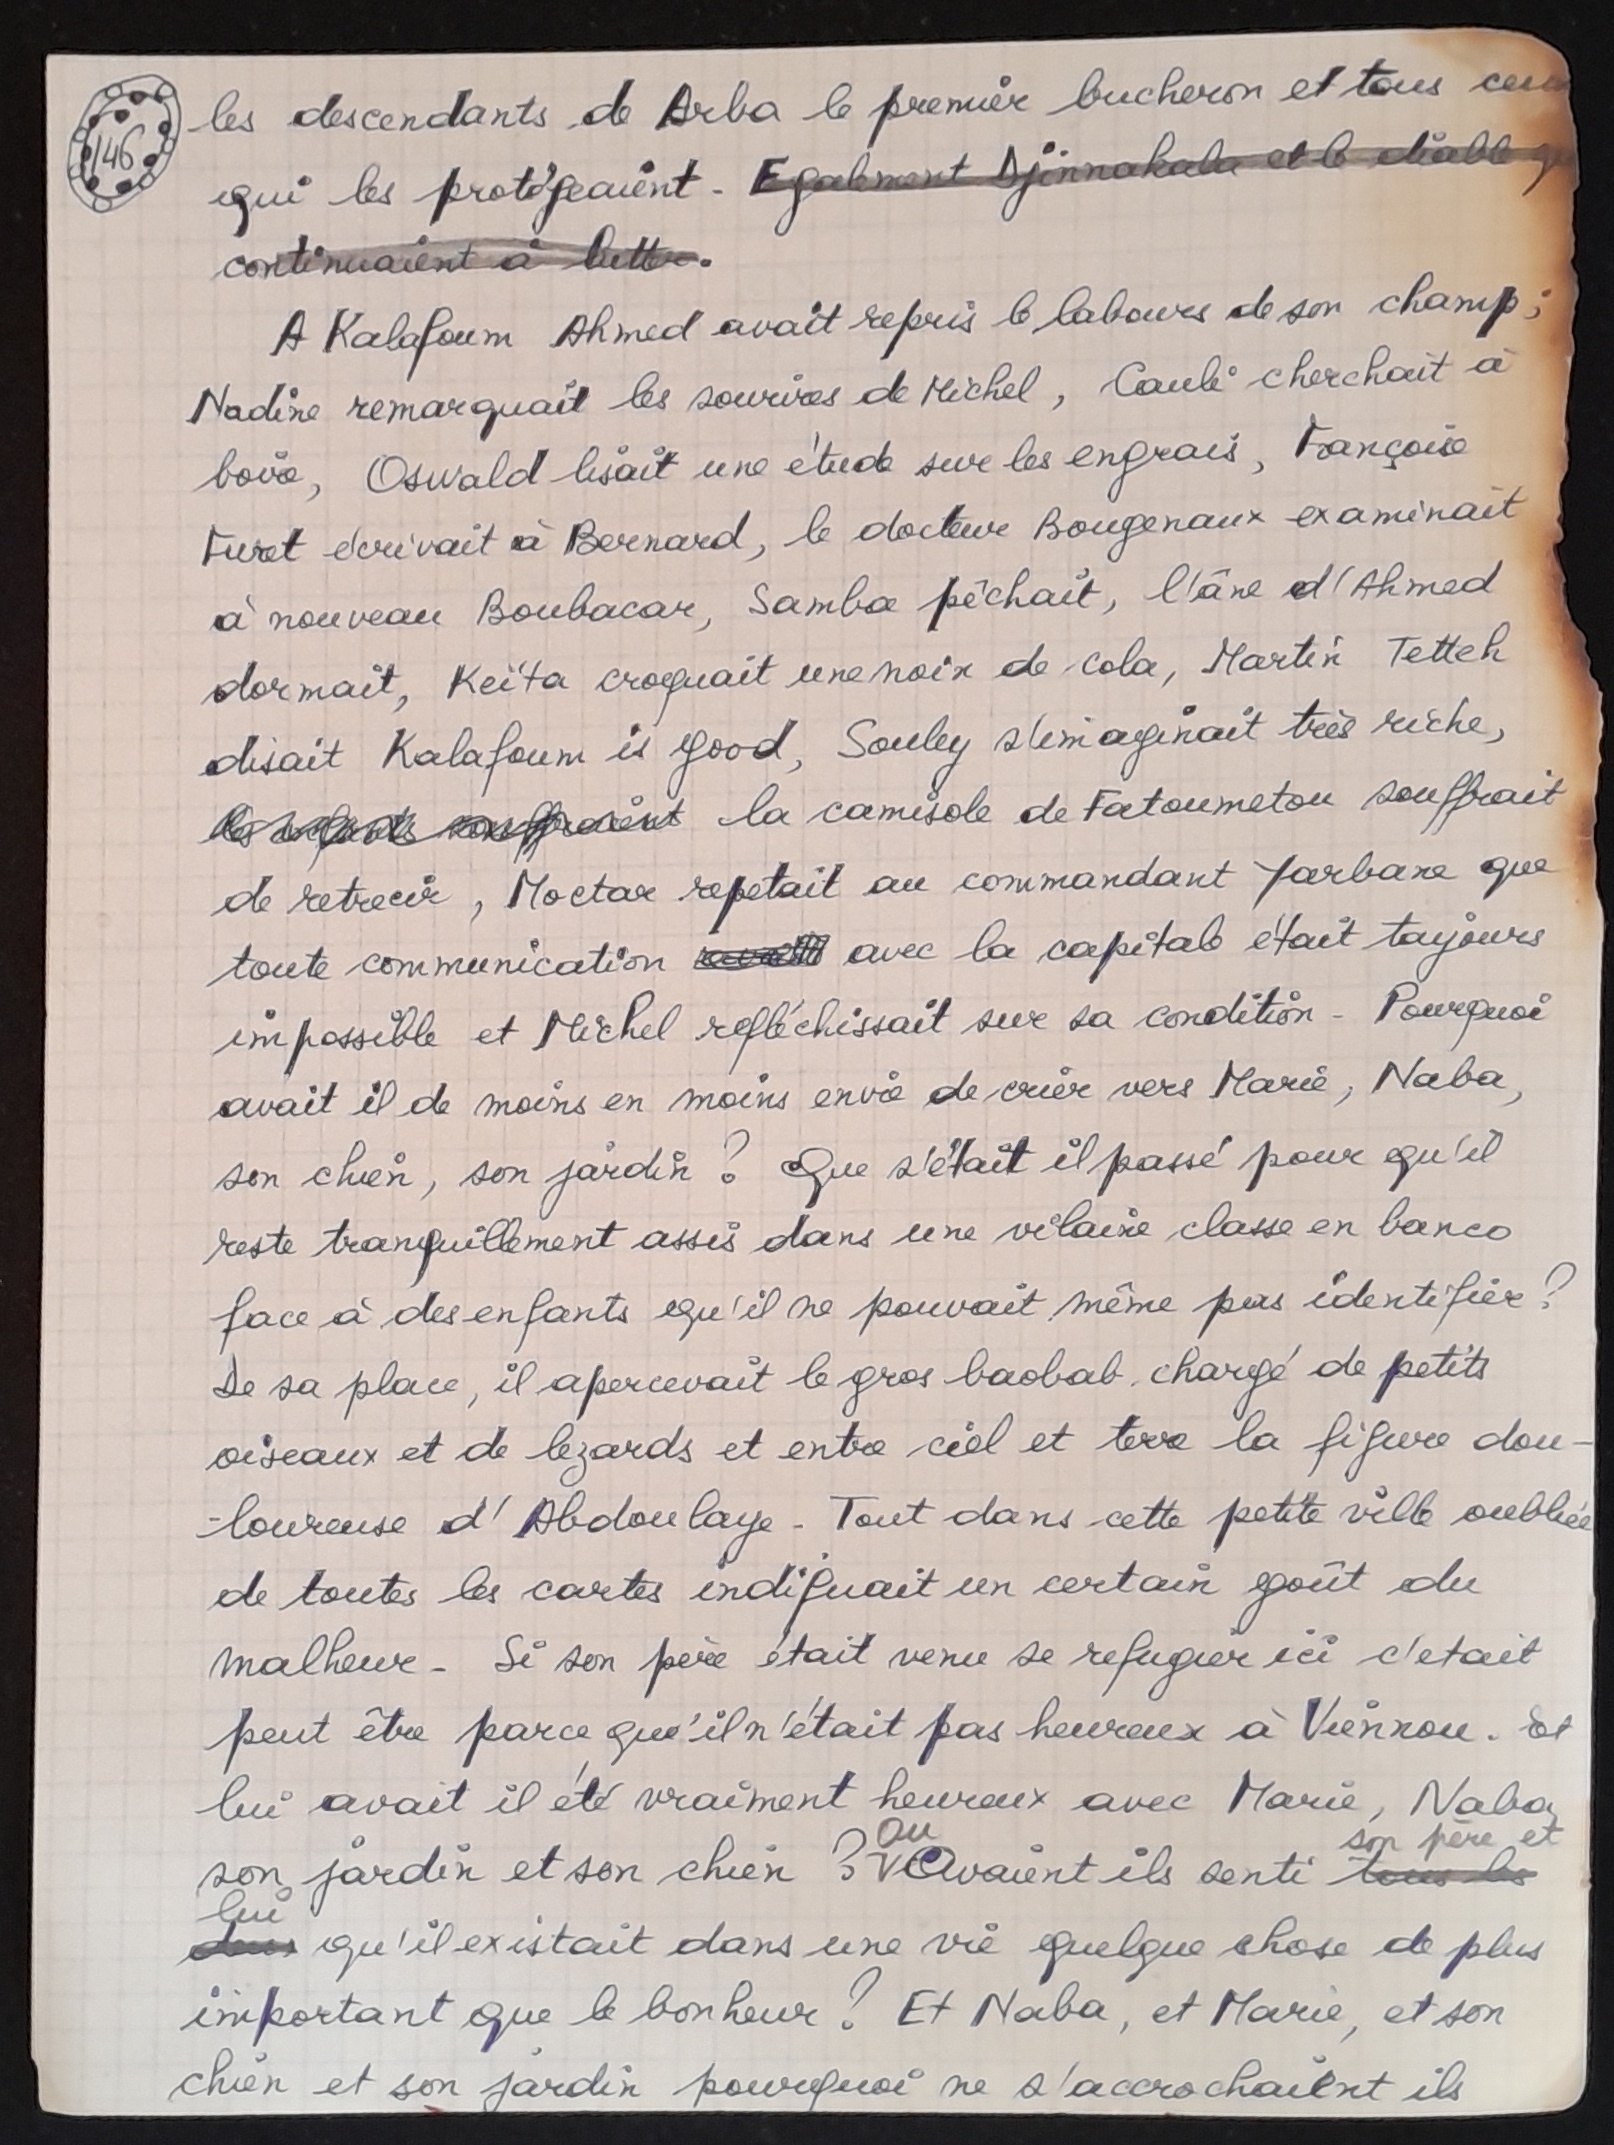 146
les descendants de Arba le premier bucheron et tous ceux
qui les protégeaient - Egalement Djinnakala et le diable
continuaient à lutter.
A Kalafoum Ahmed avait repris le labours de son champ;
Nadine remarquait les sourires de Michel, Caulé cherchait à
boire, Oswald lisait une étude sur les engrais, Françoise
Furet écrivait à Bernard, le docteur Bougenaux examinait
à nouveau Boubacar, Samba pêchait, l'âne d'Ahmed
dormait, Keïta croquait une noix de cola, Martin Tetteh
disait Kalafoum is good, Souley s'imaginait très riche,
la camisole de Fatoumetou souffrait
de retrecir, Moctar repetait au commandant Yarbane que
toute communication avec la capitale était toujours
impossible et Michel refléchissait sur sa condition - Pourquoi
avait il de moins en moins envie de crier vers Marie, Naba,
son chien, son jardin ? Que s'était il passé pour qu'il
reste tranquillement assis dans une vilaine classe en banco
face à des enfants qu'il ne pouvait même pas identifier ?
De sa place, il apercevait le gros baobab chargé de petits
oiseaux et de lezards et entre ciel et terre la figure dou-
-loureuse d'Abdoulaye - Tout dans cette petite ville oubliée
de toutes les cartes indiquait un certain goût du
malheur - Si son père était venu se refugier ici c'etait
peut être parce qu'il n'était pas heureux à Viennou. Et
lui avait il été vraiment heureux avec Marie, Naba,
son jardin et son chien ? ou Avaient ils senti tous les son père et
deux lui qu'il existait dans une vie quelque chose de plus
important que le bonheur ? Et Naba, et Marie, et son
chien et son jardin pourquoi ne s'accrochaient ils